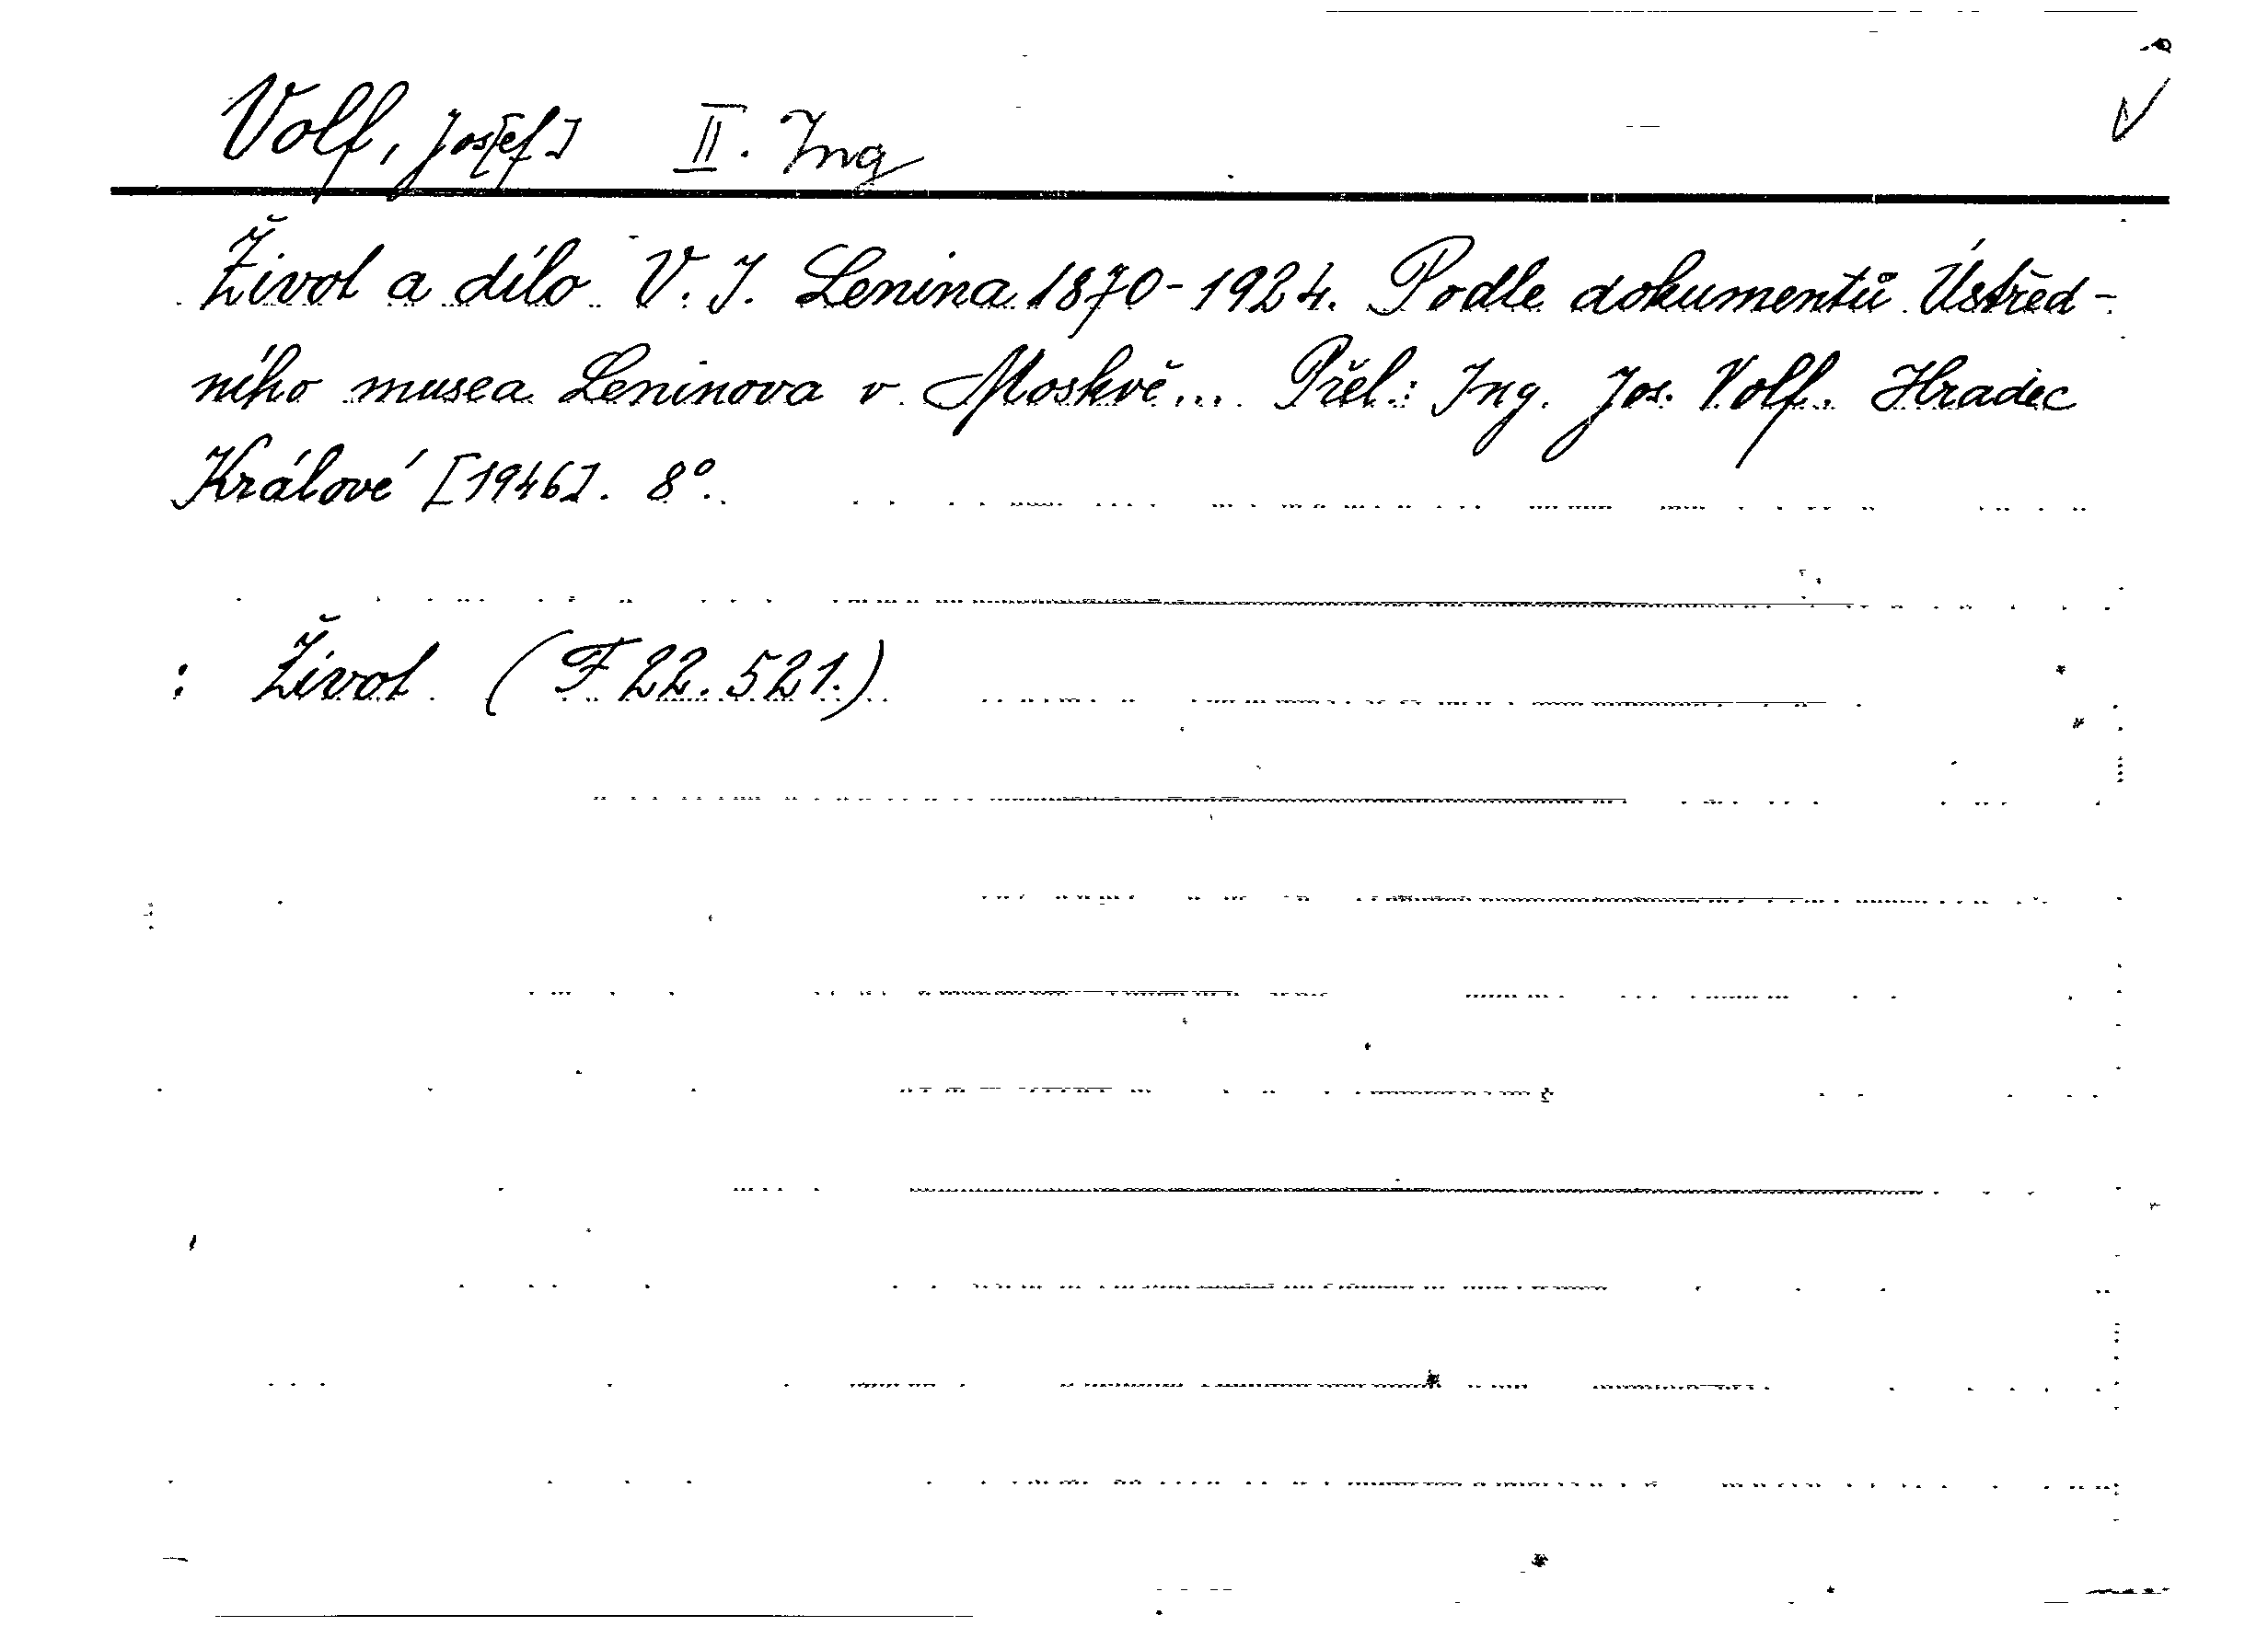 Volf, Jos[ef] II. Ing
Život a dílo V. J. Lenina 1870-1924. Podle dokumentů Ústřed-
ního musea Leninova v Moskvě... Přel.: Ing. Jos. Volf. Hradec
Králové [1946]. 8°.
: Život (F 22.521.)